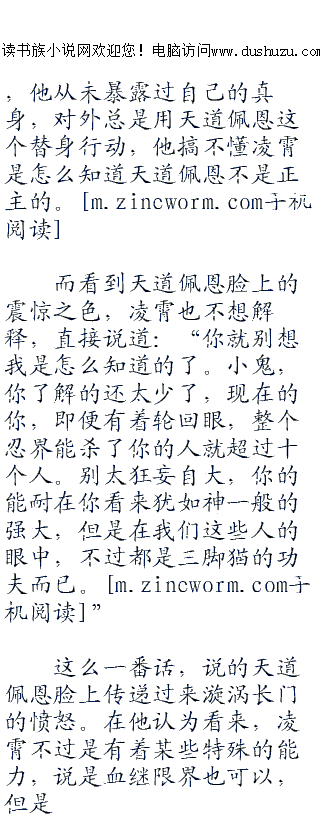 读书族小说网欢迎您！电脑访问www.dushuzu.com
，他从未暴露过自己的真
身，对外总是用天道佩恩这
个替身行动，他搞不懂凌霄
是怎么知道天道佩恩不是正
主的。[m.zincworm.com手机
阅读]
而看到天道佩恩脸上的
震惊之色，凌霄也不想解
释，直接说道：“你就别想
我是怎么知道的了。小鬼，
你了解的还太少了，现在的
你，即便有着轮回眼，整个
忍界能杀了你的人就超过十
个人。别太狂妄自大，你的
能耐在你看来犹如神一般的
强大，但是在我们这些人的
眼中，不过都是三脚猫的功
夫而已。[m.zincworm.com手
机阅读]”
这么一番话，说的天道
佩恩脸上传递过来漩涡长门
的愤怒。在他认为看来，凌
霄不过是有着某些特殊的能
力，说是血继限界也可以，
但是